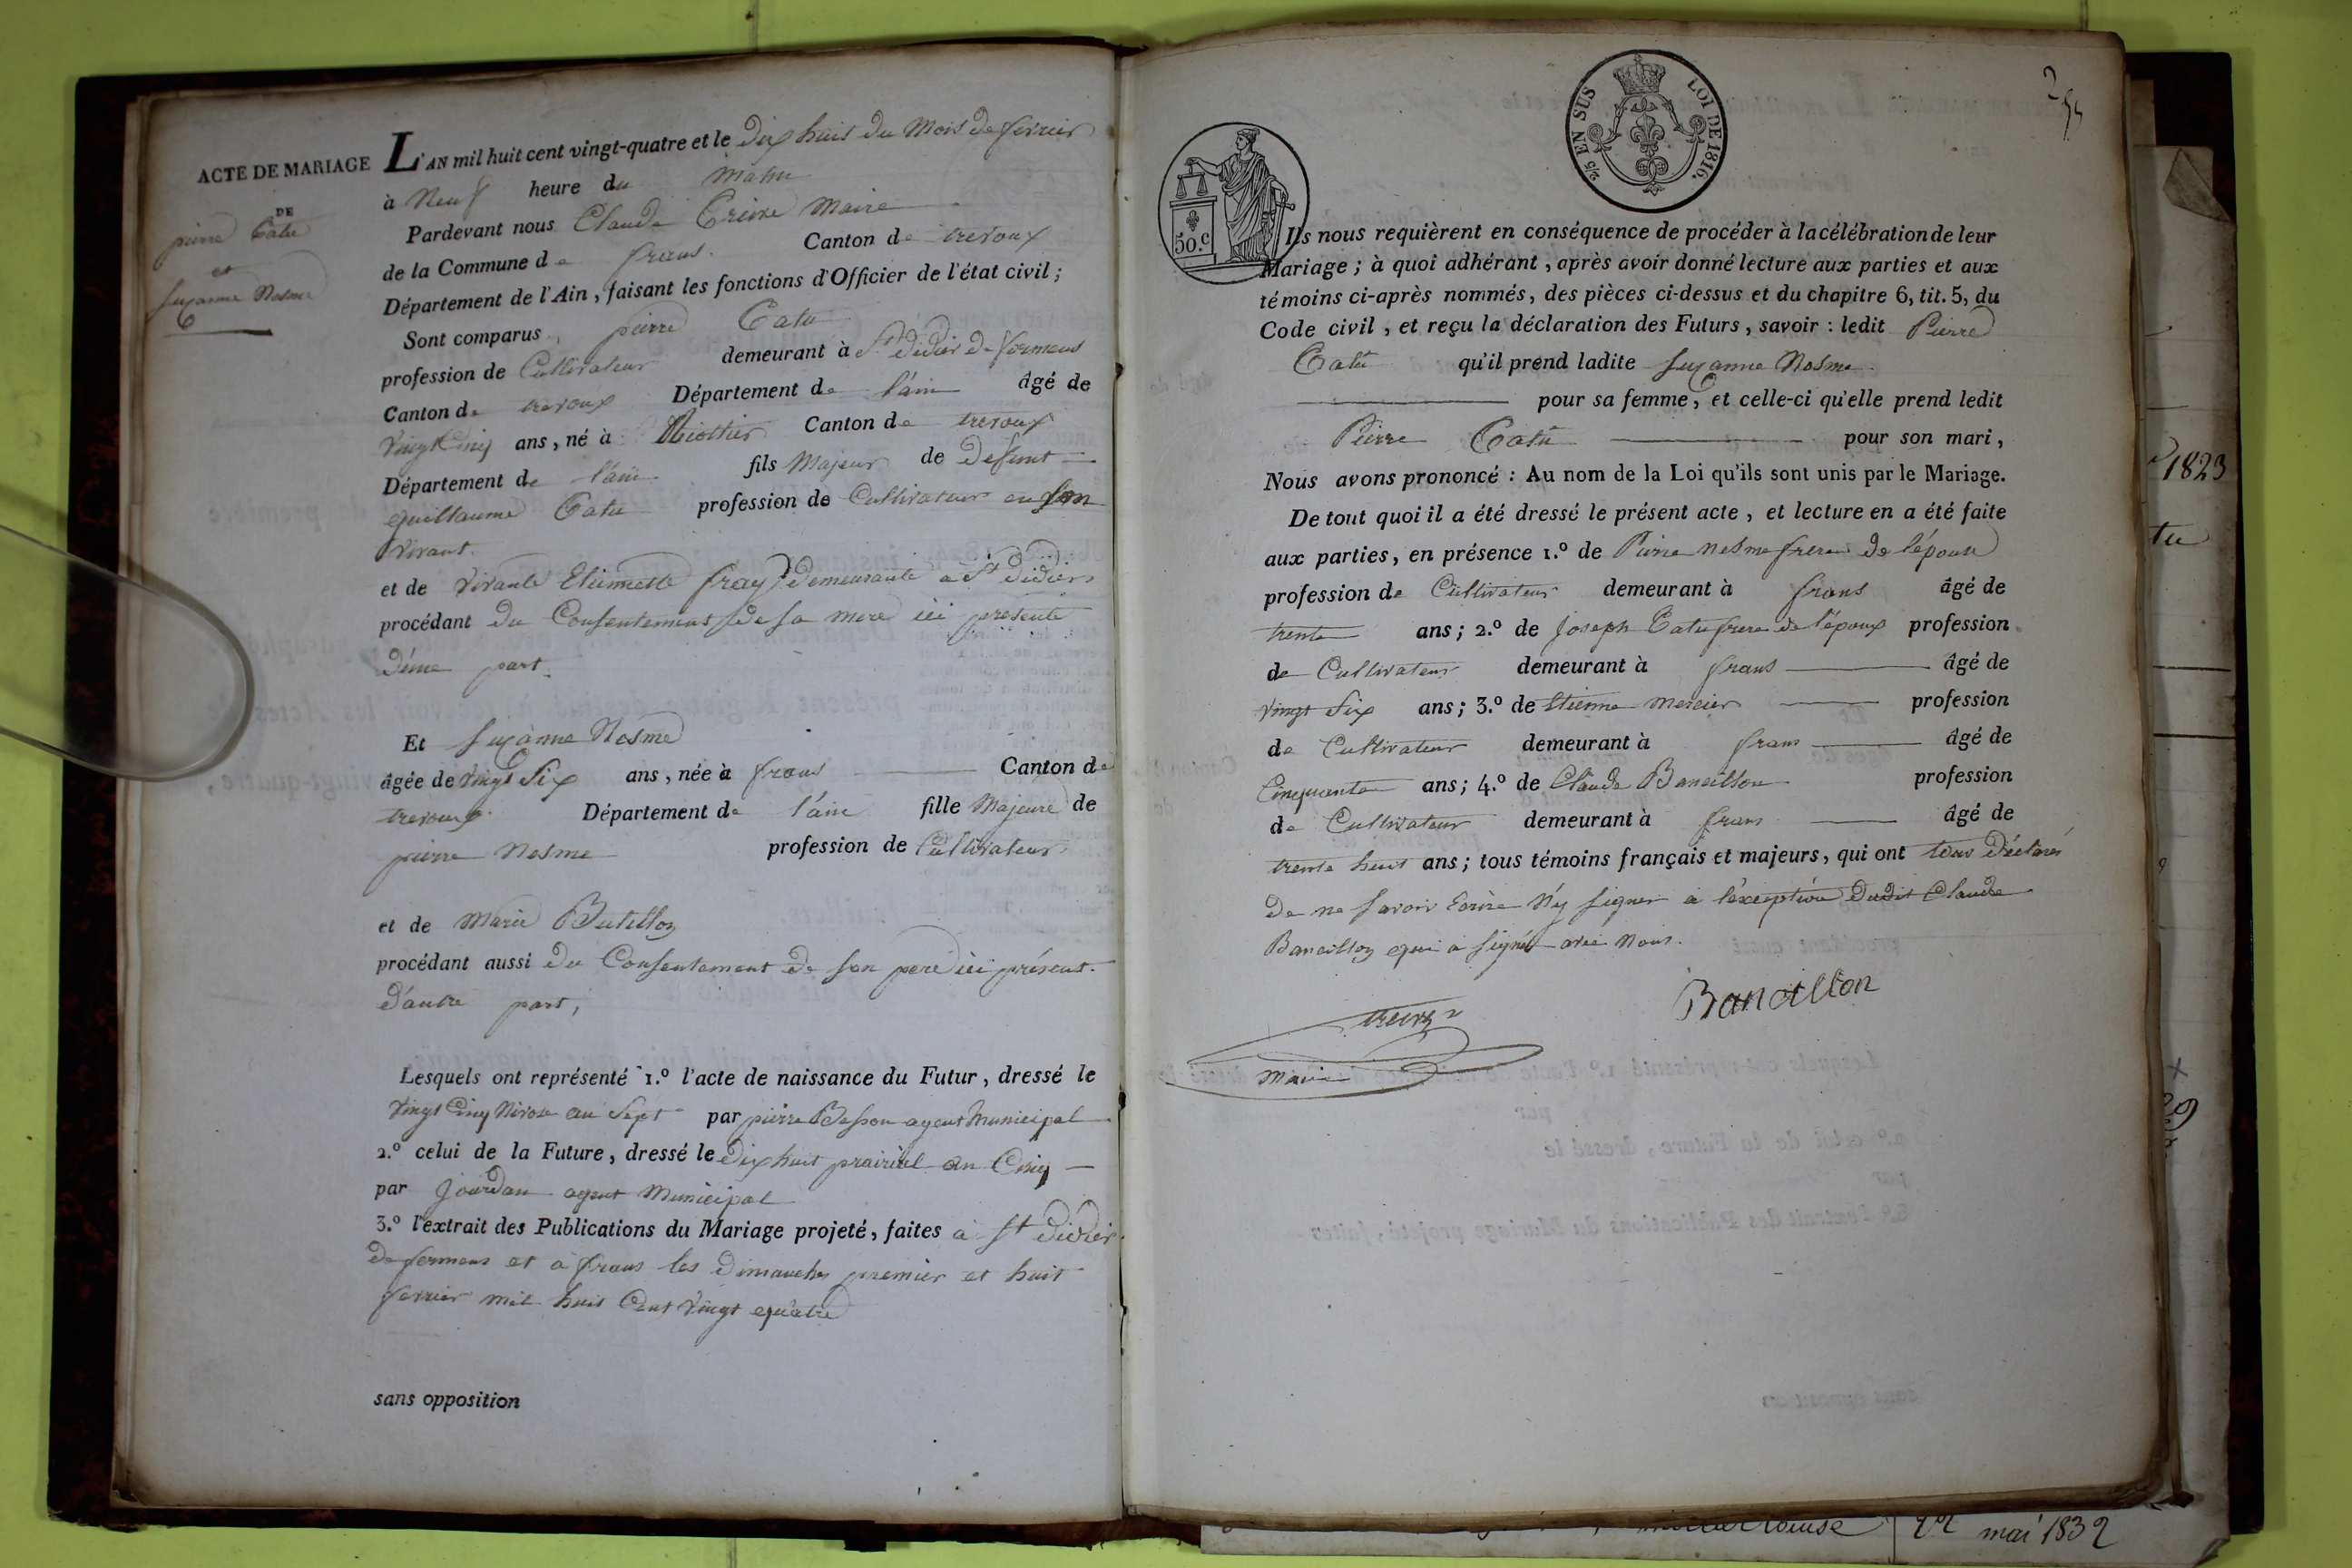 ACTE DE MARIAGE
DE
pierre Catu
et
suzanne Nesme
L'AN mil huit cent vingt-quatre et le dix huit du Mois de fevrier
à Neuf heure du matin
Pardevant nous Claude Creive Maire
de la Commune de frans. Canton de trevoux
Département de l'Ain, faisant les fonctions d'Officier de l'état civil;
Sont comparus pierre Catu
profession de Cultivateur demeurant à St didier de formens
Canton de trevoux Département de l'ain âgé de
vingt Cinq ans, né à Riottier Canton de trevoux
Département de l'ain fils Majeur de defunt
guillaume Catu profession de Cultivateur en son
vivant.
et de vivante Etiennette fray demeurante à St didier
procédant du Consentement de sa mere ici presente
d'une part.
Et suzanne Nesme
âgée de vingt Six ans, née à frans Canton de
trevoux. Département de l'ain fille Majeure de
pierre Nesme profession de Cultivateur
et de Marie Butillon
procédant aussi du Consentement de son pere ici présent.
d'autre part,
Lesquels ont représenté 1.º l'acte de naissance du Futur, dressé le
vingt Cinq Nivose an Sept par pierre Besson agent Municipal
2.º celui de la Future, dressé le dix huit prairial an Cinq
par Jourdan agent Municipal
3.º l'extrait des Publications du Mariage projeté, faites à St didier
de formens et à frans les dimanches premier et huit
fevrier mil huit Cent vingt quatre
sans opposition
2/5 EN SUS LOI DE 1816.
50.c
Ils nous requièrent en conséquence de procéder à la célébration de leur
Mariage; à quoi adhérant, après avoir donné lecture aux parties et aux
témoins ci-après nommés, des pièces ci-dessus et du chapitre 6, tit. 5, du
Code civil, et reçu la déclaration des Futurs, savoir : ledit Pierre
Catu qu'il prend ladite suzanne Nesme
pour sa femme, et celle-ci qu'elle prend ledit
Pierre Catu pour son mari,
Nous avons prononcé : Au nom de la Loi qu'ils sont unis par le Mariage.
De tout quoi il a été dressé le présent acte, et lecture en a été faite
aux parties, en présence 1.º de Pierre Nesme frere de l'épouse
profession de Cultivateur demeurant à frans âgé de
trente ans; 2.º de Joseph Catu frere de l'époux profession
de Cultivateur demeurant à frans âgé de
vingt Six ans; 3.º de Etienne Mercier profession
de Cultivateur demeurant à frans âgé de
Cinquante ans; 4.º de Claude Bancillon profession
de Cultivateur demeurant à frans âgé de
trente huit ans; tous témoins français et majeurs, qui ont tous déclarés
de ne savoir Ecrire N'y signer à l'éxception dudit Claude
Bancillon qui a signé avec Nous.
Bancillon
Maire
1823
tu
mai 1832